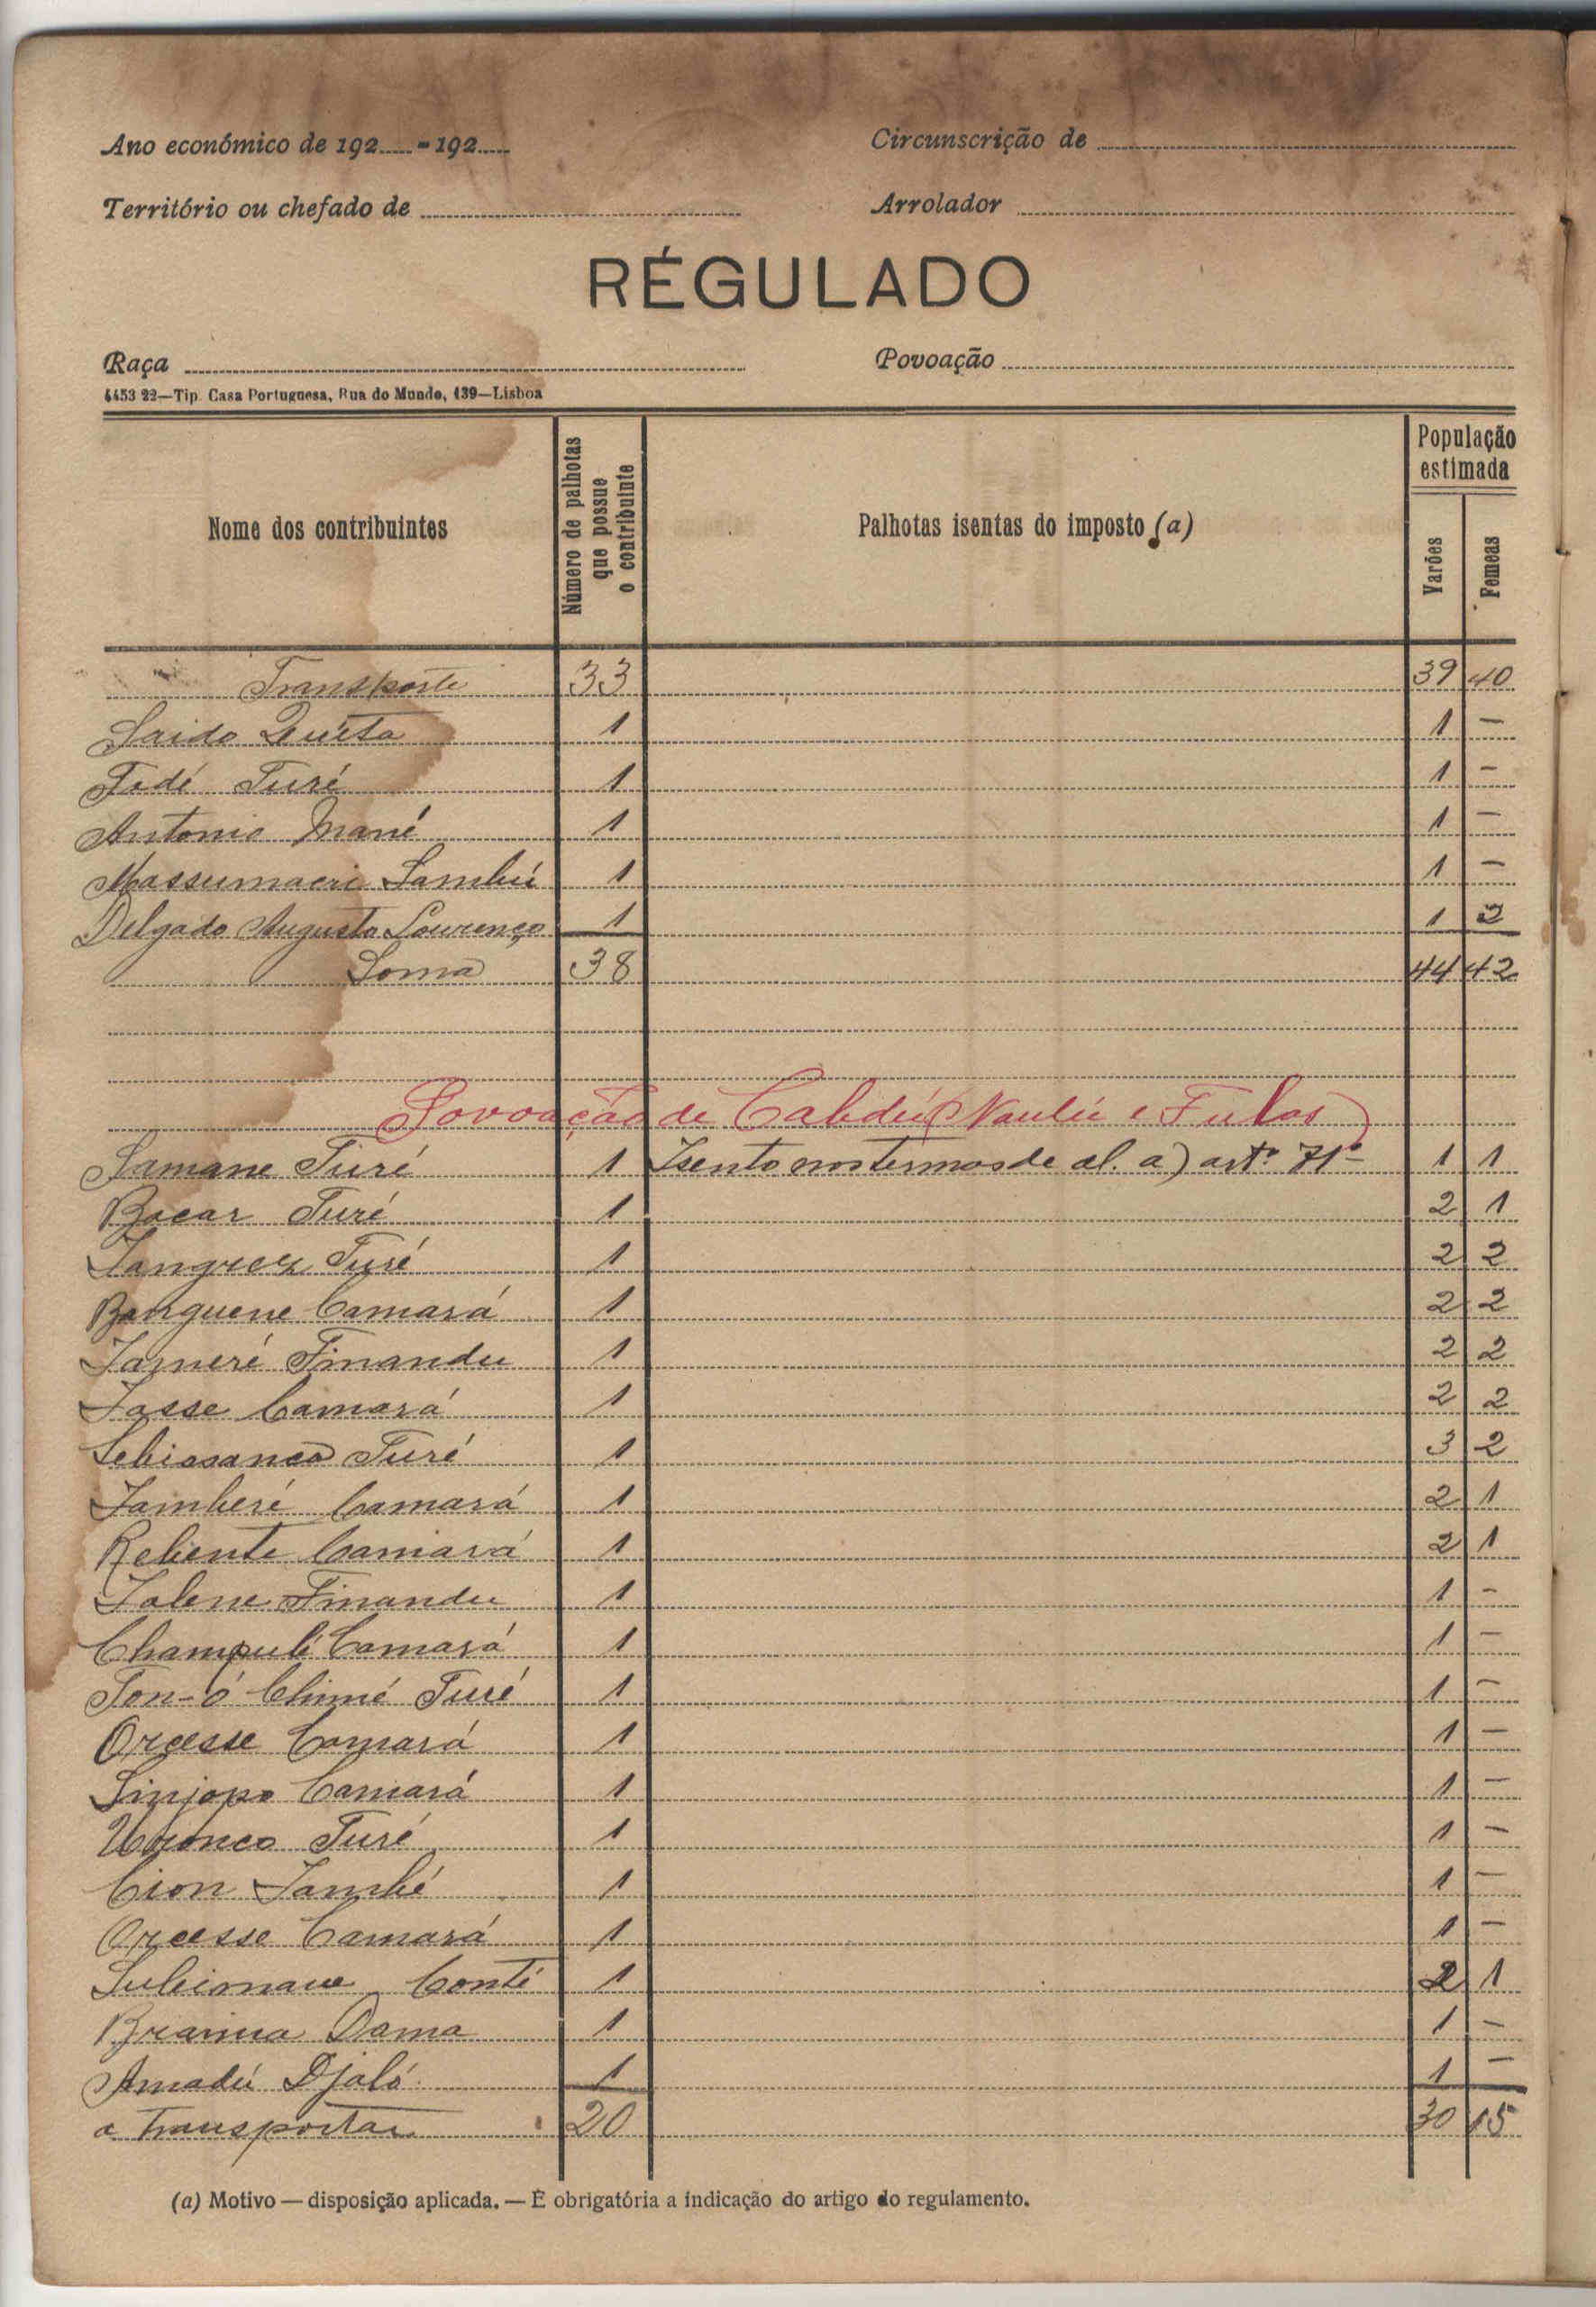 Ano económico de 192 - 192
Circunscrição de
Território ou chefado de
Arrolador
RÉGULADO
Raça
Povoação
4453 22—Tip. Casa Portuguesa, Rua do Mundo, 139—Lisboa
Nome dos contribuintes
Número de palhotas que possue o contribuinte
Palhotas isentas do imposto (a)
População estimada
Varões
Femeas
Transporte 33 39 40
Saido Queita 1 1 -
Fodé Turé 1 1 -
Antonio Mané 1 1 -
Massumaeri Sambú 1 1 -
Delgado Augusto Lourenço 1 1 2
Soma 38 44 42
Povoação de Cabdú (Naulú e Fulas)
Samane Turé 1 Isento nos termos de al. a) artº 71º 1 1
Bocar Turé 1 2 1
Turé 1 2 2
Banguene Camará 1 2 2
Jameré Finandu 1 2 2
Jasse Camará 1 2 2
Turé 1 3 2
Jamberé Camará 1 2 1
Rebente Camará 1 2 1
Jalene Finandu 1 1 -
Champulé Camará 1 1 -
Ton-ó Chimé Turé 1 1 -
Orcesse Camará 1 1 -
Sinjopo Camará 1 1 -
Turé 1 1 -
Cion Jambé 1 1 -
Orcesse Camará 1 1 -
Suleimane Conté 1 2 1
Braima Dama 1 1 -
Amadú Djaló 1 1 -
a transportar 20 30 15
(a) Motivo — disposição aplicada. — É obrigatória a indicação do artigo do regulamento.